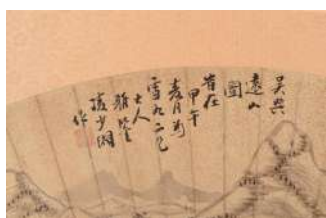 吳興
遠山
圖
旹在
甲午
春月為
雪九二兄
大人
雅鑒
少湖
作